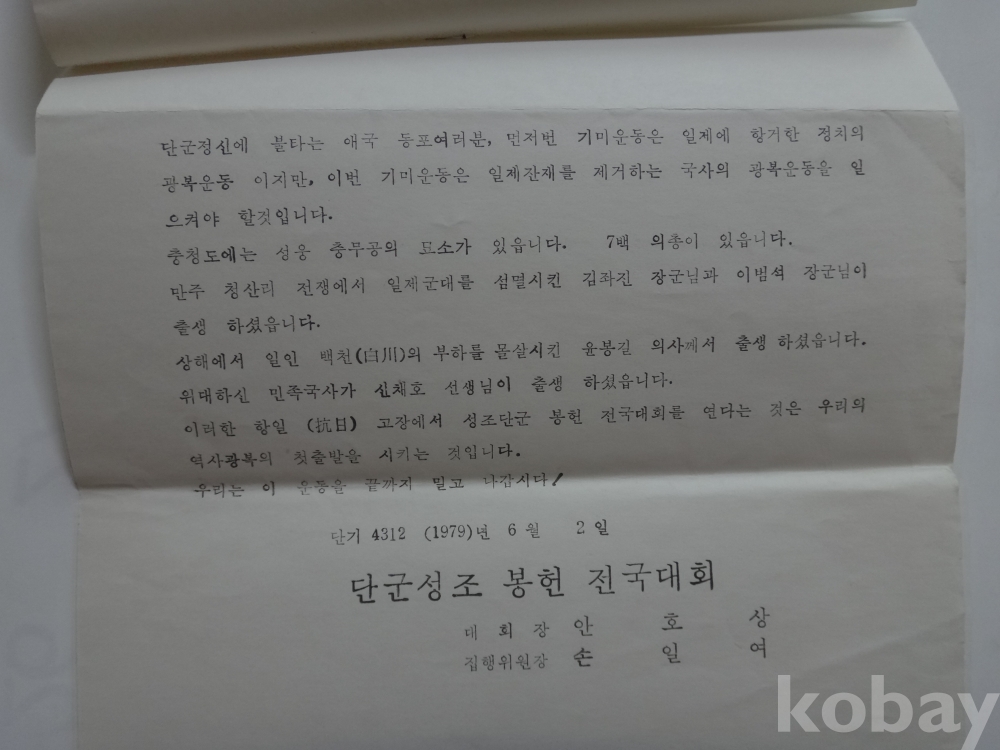 단군정신에 불타는 애국 동포여러분, 먼저번 기미운동은 일제에 항거한 정치의
광복운동 이지만, 이번 기미운동은 일제잔재를 제거하는 국사의 광복운동을 일
으켜야 할것입니다.
충청도에는 성웅 충무공의 묘소가 있읍니다. 7백 의총이 있읍니다.
만주 청산리 전쟁에서 일제군대를 섬멸시킨 김좌진 장군님과 이범석 장군님이
출생 하셨읍니다.
상해에서 일인 백천(白川)의 부하를 몰살시킨 윤봉길 의사께서 출생 하셨읍니다.
위대하신 민족국사가 신채호 선생님이 출생 하셨읍니다.
이러한 항일 (抗日) 고장에서 성조단군 봉헌 전국대회를 연다는 것은 우리의
역사광복의 첫출발을 시키는 것입니다.
우리는 이 운동을 끝까지 밀고 나갑시다!
단기 4312 (1979)년 6월 2일
단군성조 봉헌 전국대회
대 회 장 안 호 상
집행위원장 손 일 여
kobay